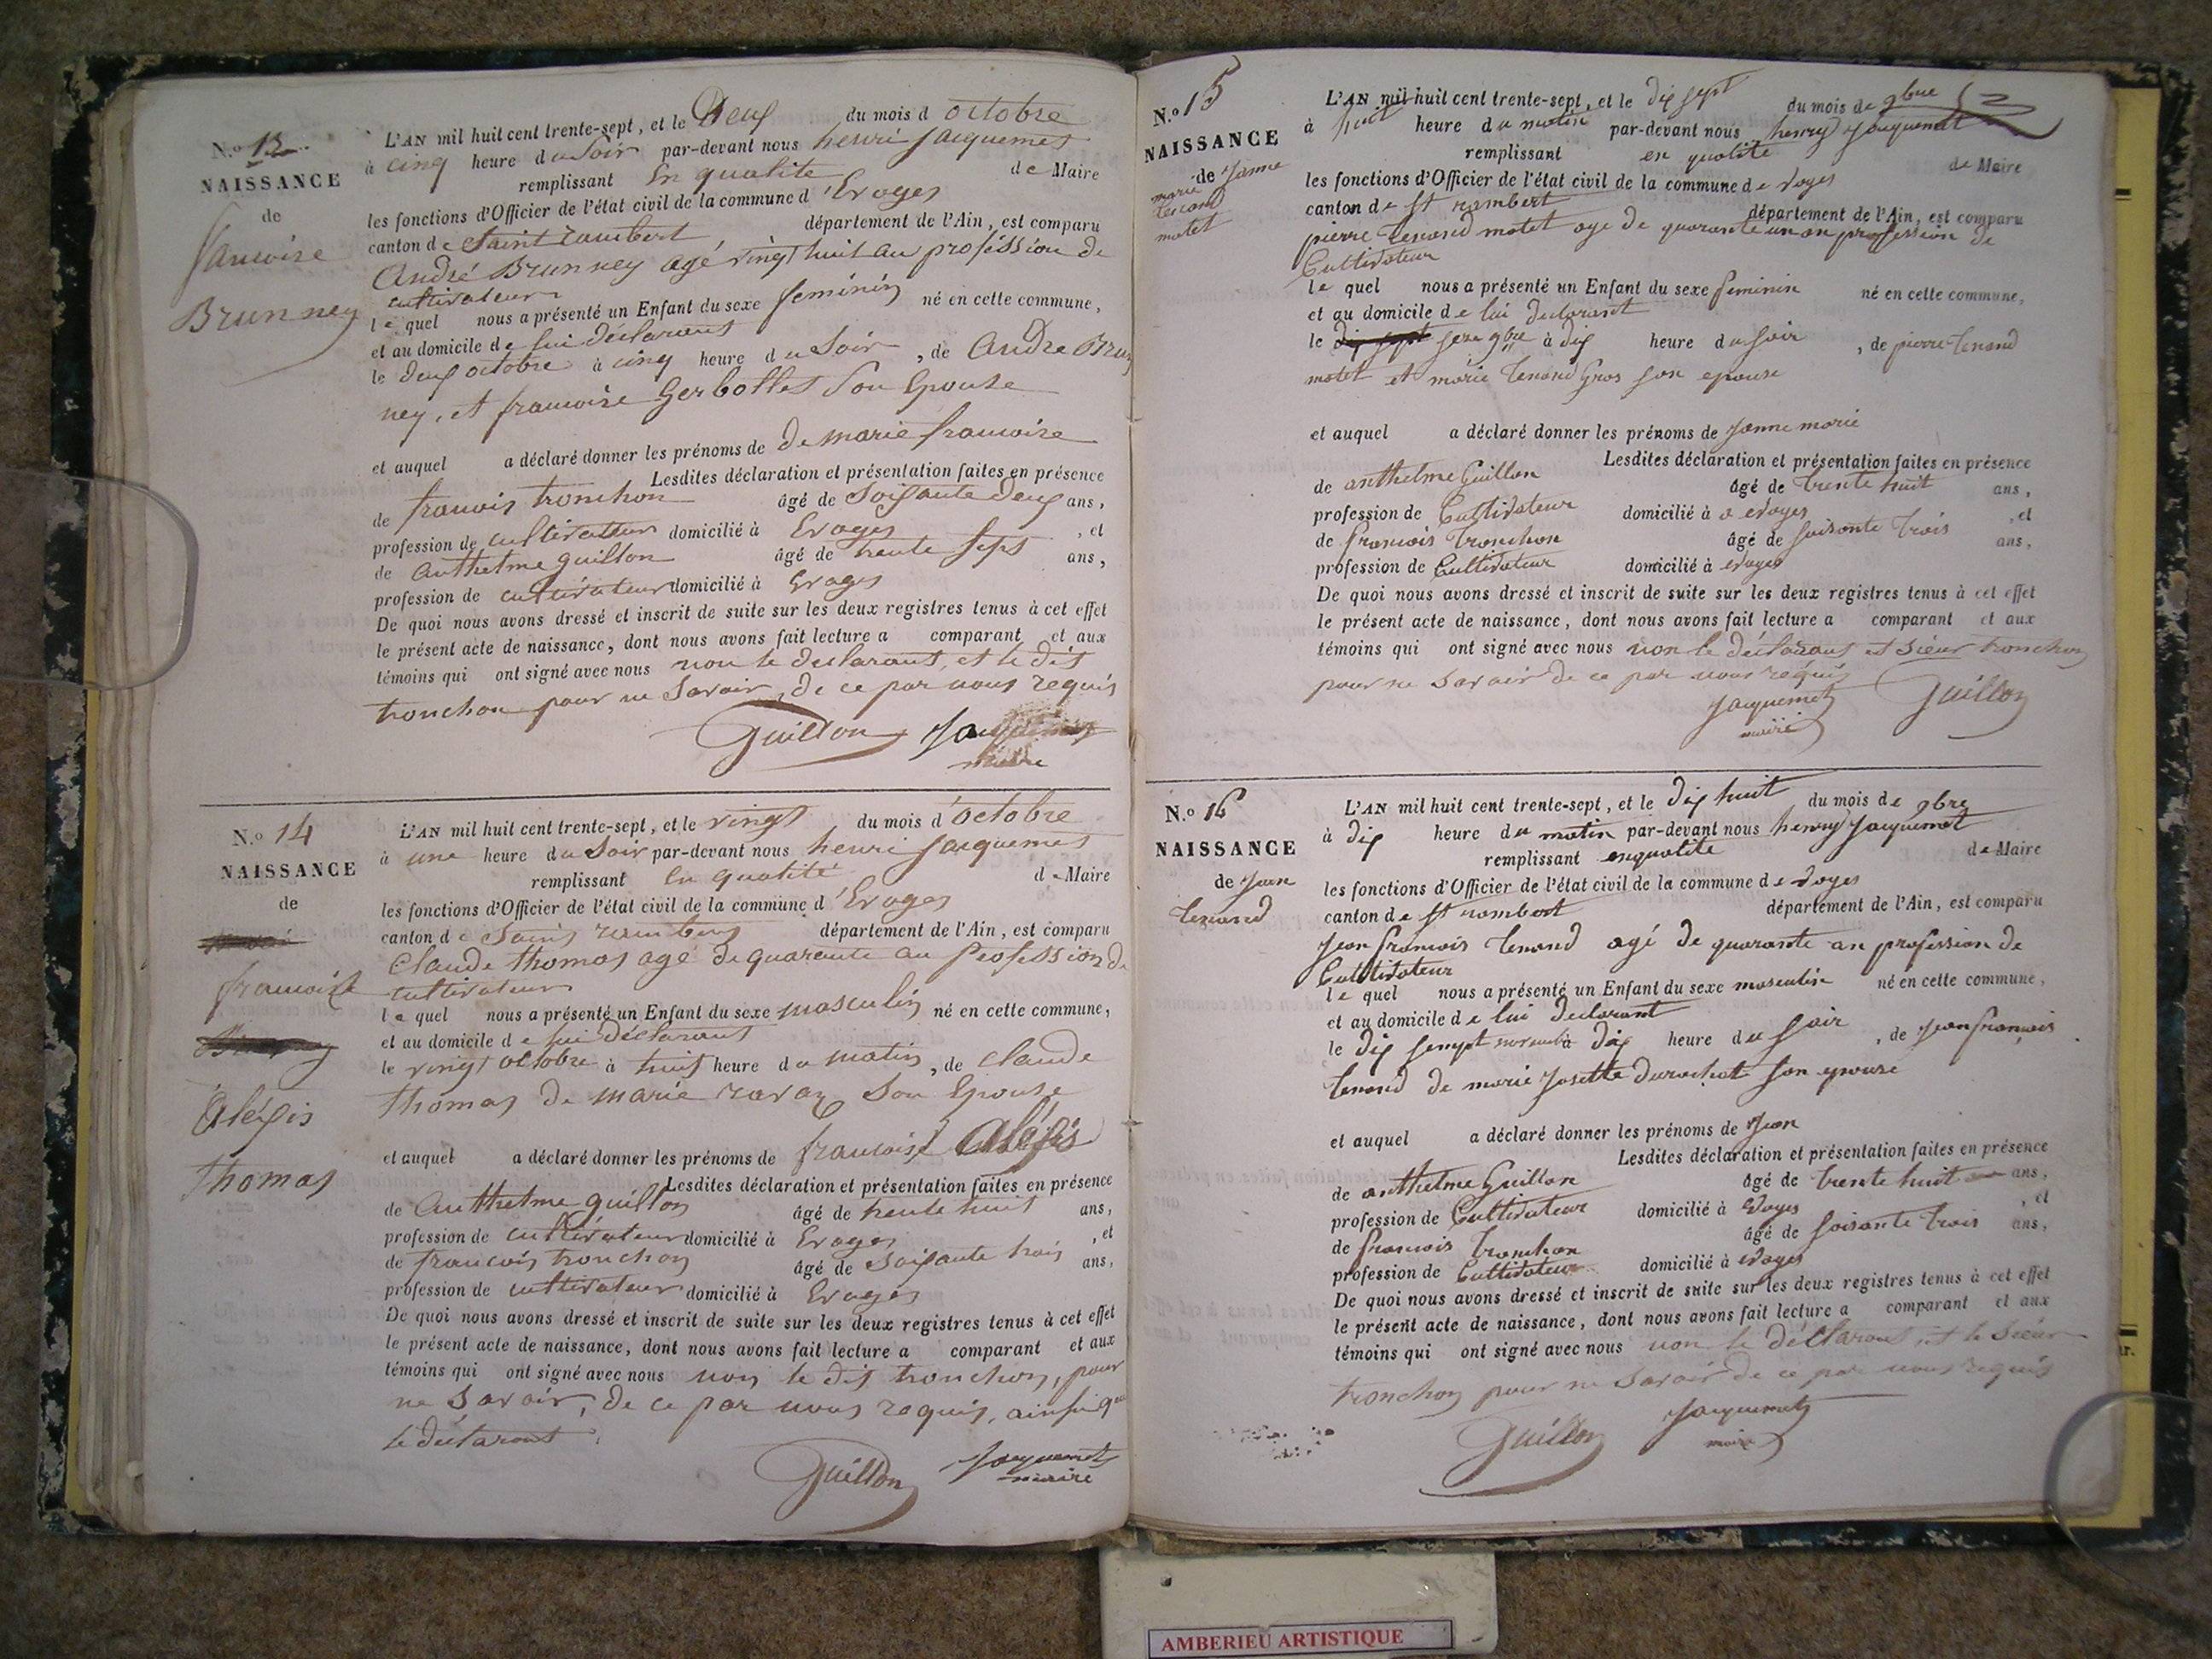 N.o 13
NAISSANCE
de
francoise
Brunney
L'AN mil huit cent trente-sept, et le Deux du mois d octobre
à cinq heure du Soir par-devant nous henri jacquemet
remplissant En qualité de Maire
les fonctions d'Officier de l'état civil de la commune d'Evoges
canton de Saint rambert département de l'Ain, est comparu
André Brunney agé vingt huit an profession de
cultivateur
le quel nous a présenté un Enfant du sexe feminin né en cette commune,
et au domicile de lui déclarant
le deux octobre à cinq heure du Soir, de André Brun
ney, et francoise Gerbollet Son Epouse
et auquel a déclaré donner les prénoms de De marie francoise
Lesdites déclaration et présentation faites en présence
de francois tronchon âgé de Soixante deux ans,
profession de cultivateur domicilié à Evoges, et
de Anthelme guillon âgé de trente sept ans,
profession de cultivateur domicilié à Evoges
De quoi nous avons dressé et inscrit de suite sur les deux registres tenus à cet effet
le présent acte de naissance, dont nous avons fait lecture a comparant et aux
témoins qui ont signé avec nous non le declarant, et le dit
tronchon pour ne Savoir, de ce par nous requis
Guillon Jacquemet
maire
N.o 14
NAISSANCE
de
francoise
Aléxis
thomas
L'AN mil huit cent trente-sept, et le vingt du mois d'octobre
à une heure du Soir par-devant nous henri jacquemet
remplissant En qualité de Maire
les fonctions d'Officier de l'état civil de la commune d'Evoges
canton de Saint rambert département de l'Ain, est comparu
Claude thomas agé de quarente an Profession de
cultivateur
le quel nous a présenté un Enfant du sexe masculin né en cette commune,
et au domicile de lui déclarant
le vingt octobre à huit heure du matin, de Claude
thomas de marie ravaz Son Epouse
et auquel a déclaré donner les prénoms de francoise Aléxis
Lesdites déclaration et présentation faites en présence
de Anthelme guillon âgé de trente huit ans,
profession de cultivateur domicilié à Evoges, et
de francois tronchon âgé de Soixante trois ans,
profession de cultivateur domicilié à Evoges
De quoi nous avons dressé et inscrit de suite sur les deux registres tenus à cet effet
le présent acte de naissance, dont nous avons fait lecture a comparant et aux
témoins qui ont signé avec nous non le dit tronchon, pour
ne Savoir, de ce par nous requis, ainsi que
le déclarant.
Guillon Jacquemet
maire
N.o 15
NAISSANCE
de Janne
marie
tenand
motet
L'AN mil huit cent trente-sept, et le dix sept du mois de 9bre
à huit heure du matin par-devant nous henry Jacquemet
remplissant en qualite de Maire
les fonctions d'Officier de l'état civil de la commune de voges
canton de St rambert département de l'Ain, est comparu
pierre tenand motet age de quarante un an profession de
Cultivateur
le quel nous a présenté un Enfant du sexe feminin né en cette commune,
et au domicile de lui declarant
le seze 9bre à dix heure du soir, de pierre tenand
motet et marie tenand Gros son epouse
et auquel a déclaré donner les prénoms de Janne marie
Lesdites déclaration et présentation faites en présence
de anthelme Guillon âgé de trente huit ans,
profession de Cultivateur domicilié à a evoges, et
de francois tronchon âgé de soisante trois ans,
profession de Cultivateur domicilié à evoges
De quoi nous avons dressé et inscrit de suite sur les deux registres tenus à cet effet
le présent acte de naissance, dont nous avons fait lecture a comparant et aux
témoins qui ont signé avec nous non le déclarant et Sieur tronchon
pour ne Savoir de ce par nous réquis
Jacquemet Guillon
maire
N.o 16
NAISSANCE
de Jean
tenand
L'AN mil huit cent trente-sept, et le dix huit du mois de 9bre
à dix heure du matin par-devant nous henry Jacquemet
remplissant enqualite de Maire
les fonctions d'Officier de l'état civil de la commune de voges
canton de St rambert département de l'Ain, est comparu
Jean francois tenand agé de quarante an profession de
Cultivateur
le quel nous a présenté un Enfant du sexe masculin né en cette commune,
et au domicile de lui declarant
le dix à dix heure du soir, de Jean francois
tenand de marie Josette durochat son epouse
et auquel a déclaré donner les prénoms de Jean
Lesdites déclaration et présentation faites en présence
de anthelme Guillon âgé de trente huit ans,
profession de Cultivateur domicilié à Evoges, et
de francois tronchon âgé de soisante trois ans,
profession de Cultivateur domicilié à evoges
De quoi nous avons dressé et inscrit de suite sur les deux registres tenus à cet effet
le présent acte de naissance, dont nous avons fait lecture a comparant et aux
témoins qui ont signé avec nous non le déclarant et le Sieur
tronchon pour ne Savoir de ce par nous requis
Guillon Jacquemet
maire
AMBERIEU ARTISTIQUE